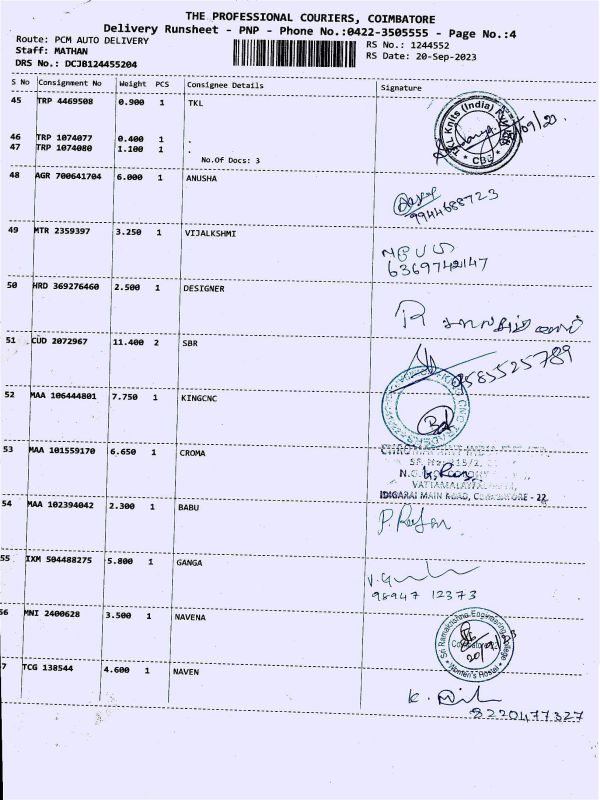 THE PROFESSIONAL COURIERS, COIMBATORE
Delivery Runsheet - PNP - Phone No.:0422-3505555 - Page No.:4
Route: PCM AUTO DELIVERY
RS No.: 1244552
Staff: MATHAN
RS Date: 20-Sep-2023
DRS No.: DCJB124455204
S No Consignment No Weight PCS Consignee Details Signature
45 TRP 4469508 0.900 1 TKL
TKL Knits (India) CBE
46 TRP 1074077 0.400 1 .
47 TRP 1074080 1.100 1 .
No.Of Docs: 3
48 AGR 700641704 6.000 1 ANUSHA
9944688723
49 MTR 2359397 3.250 1 VIJALKSHMI
6369742147
50 HRD 369276460 2.500 1 DESIGNER
51 CUD 2072967 11.400 2 SBR
9585525789
52 MAA 106444801 7.750 1 KINGCNC
53 MAA 101559170 6.650 1 CROMA
IDIGARAI MAIN ROAD, COIMBATORE - 22.
54 MAA 102394042 2.300 1 BABU
55 IXM 504488275 5.800 1 GANGA
98947 12373
56 MNI 2400628 3.500 1 NAVENA
Sri Ramakrishna Engineering College
Women's Hostel
7 TCG 138544 4.600 1 NAVEN
8220477327